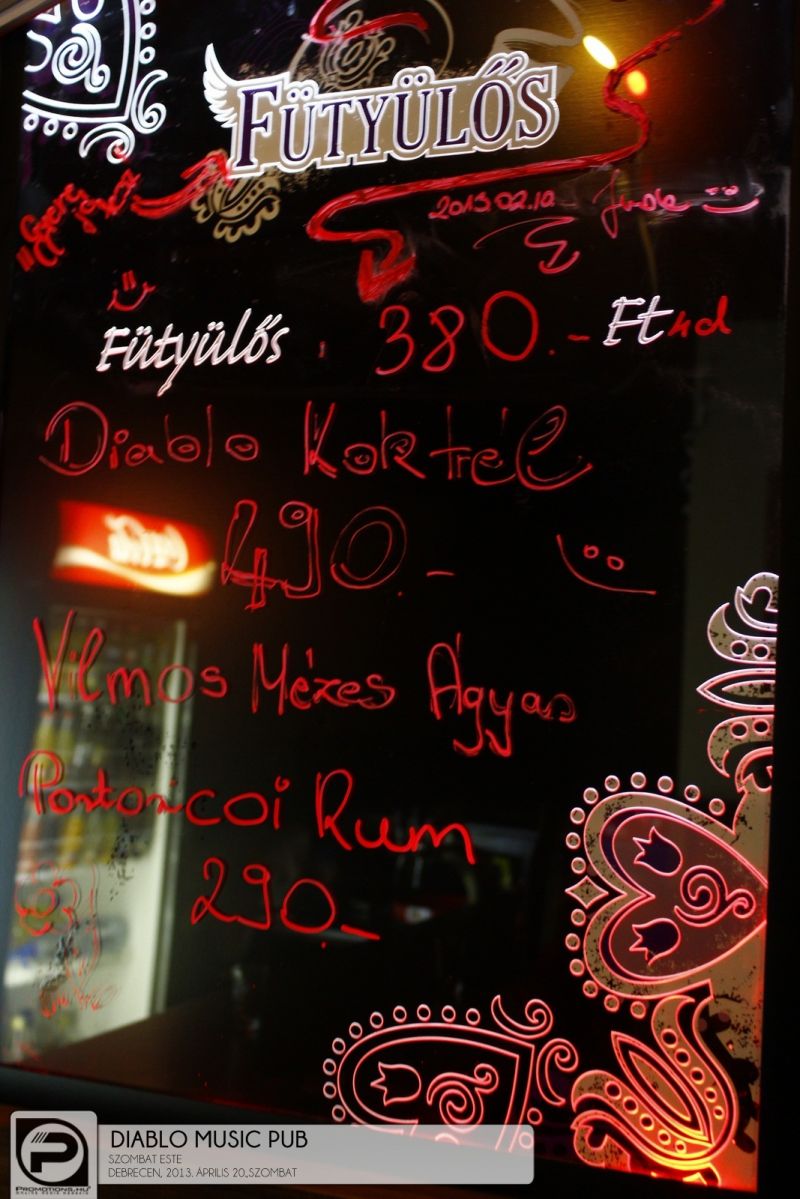 FÜTYÜLŐS
"Gyere
2013.02.10
Fütyülős : 380.- Ft 4cl
Diablo Koktél
490.-
Vilmos Mézes Ágyas
Portoricoi Rum
290.-
DIABLO MUSIC PUB
SZOMBAT ESTE
DEBRECEN, 2013. ÁPRILIS 20.,SZOMBAT
PROMOTIONS.HU